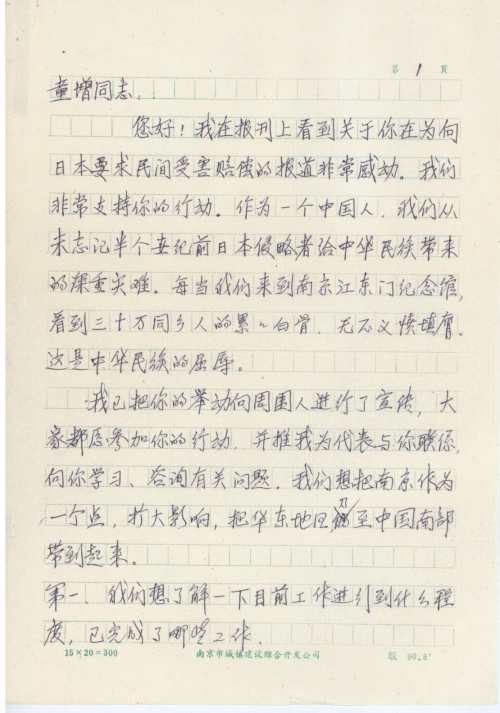 第 1 頁
童增同志.
您好！我在报刊上看到关于你在为向
日本要求民间受害赔偿的报道非常感动。我们
非常支持你的行动。作为一个中国人，我们从
未忘记半个世纪前日本侵略者给中华民族带来
的深重灾难。每当我们来到南京江东门纪念馆，
看到三十万同乡人的累々白骨，无不义愤填膺。
这是中华民族的屈辱。
我已把你的举动向周围人进行了宣传，大
家都愿参加你的行动，并推我为代表与你联系，
向你学习、咨询有关问题。我们想把南京作为
一个点，扩大影响，把华东地区乃至中国南部
带到起来。
第一、我们想了解一下目前工作进引到什么程
度，已完成了哪些工作.
15×20=300
南京市城镇建设综合开发公司
联 90.8